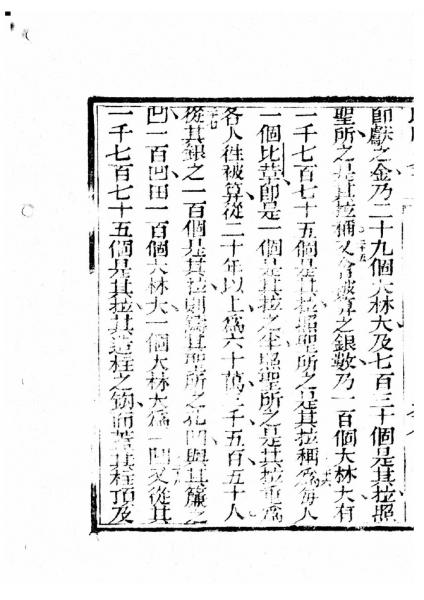 即獻之金乃二十九個大林大及七百三十個是其拉照
聖所之是其拉稱又會被算之銀數乃一百個大林大有
一千七百七十五個是其拉照聖所之是其拉稱為每人
一個比革即是一個是其拉之半照聖所之是其拉重為
各人徃被算從二十年以上為六十萬三千五百五十人
從其銀之一百個是其拉則鑄其聖所之凹與其簾之
凹一百凹由一百個大林大一個大林大為一凹又從其
一千七百七十五個是其拉其造柱之鈎而蓋其柱頂及